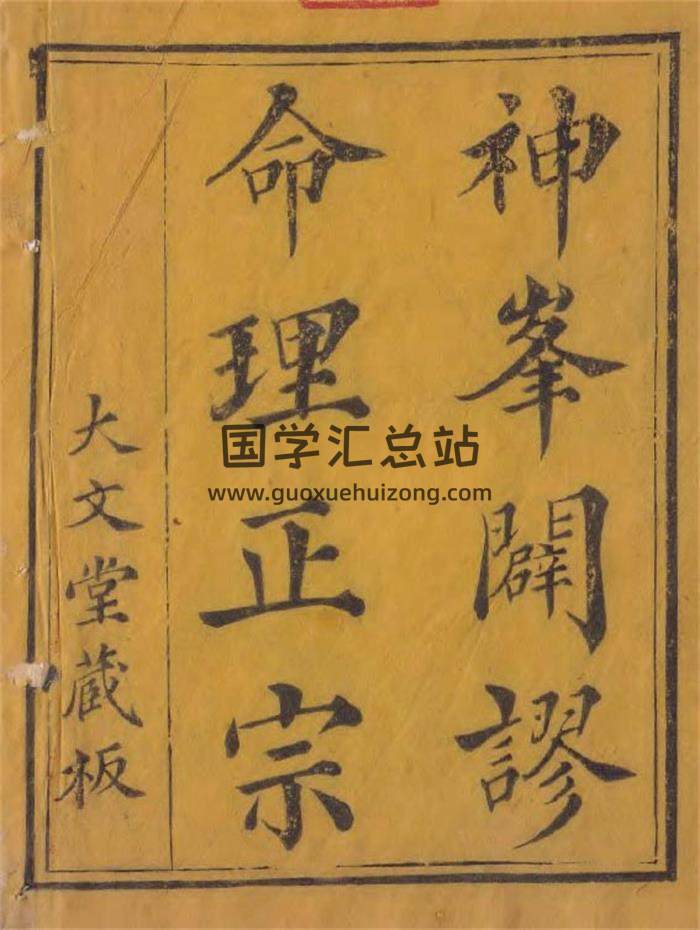 神峯闢謬
命理正宗
大文堂蔵板
国学汇总站
www.guoxuehuizong.com